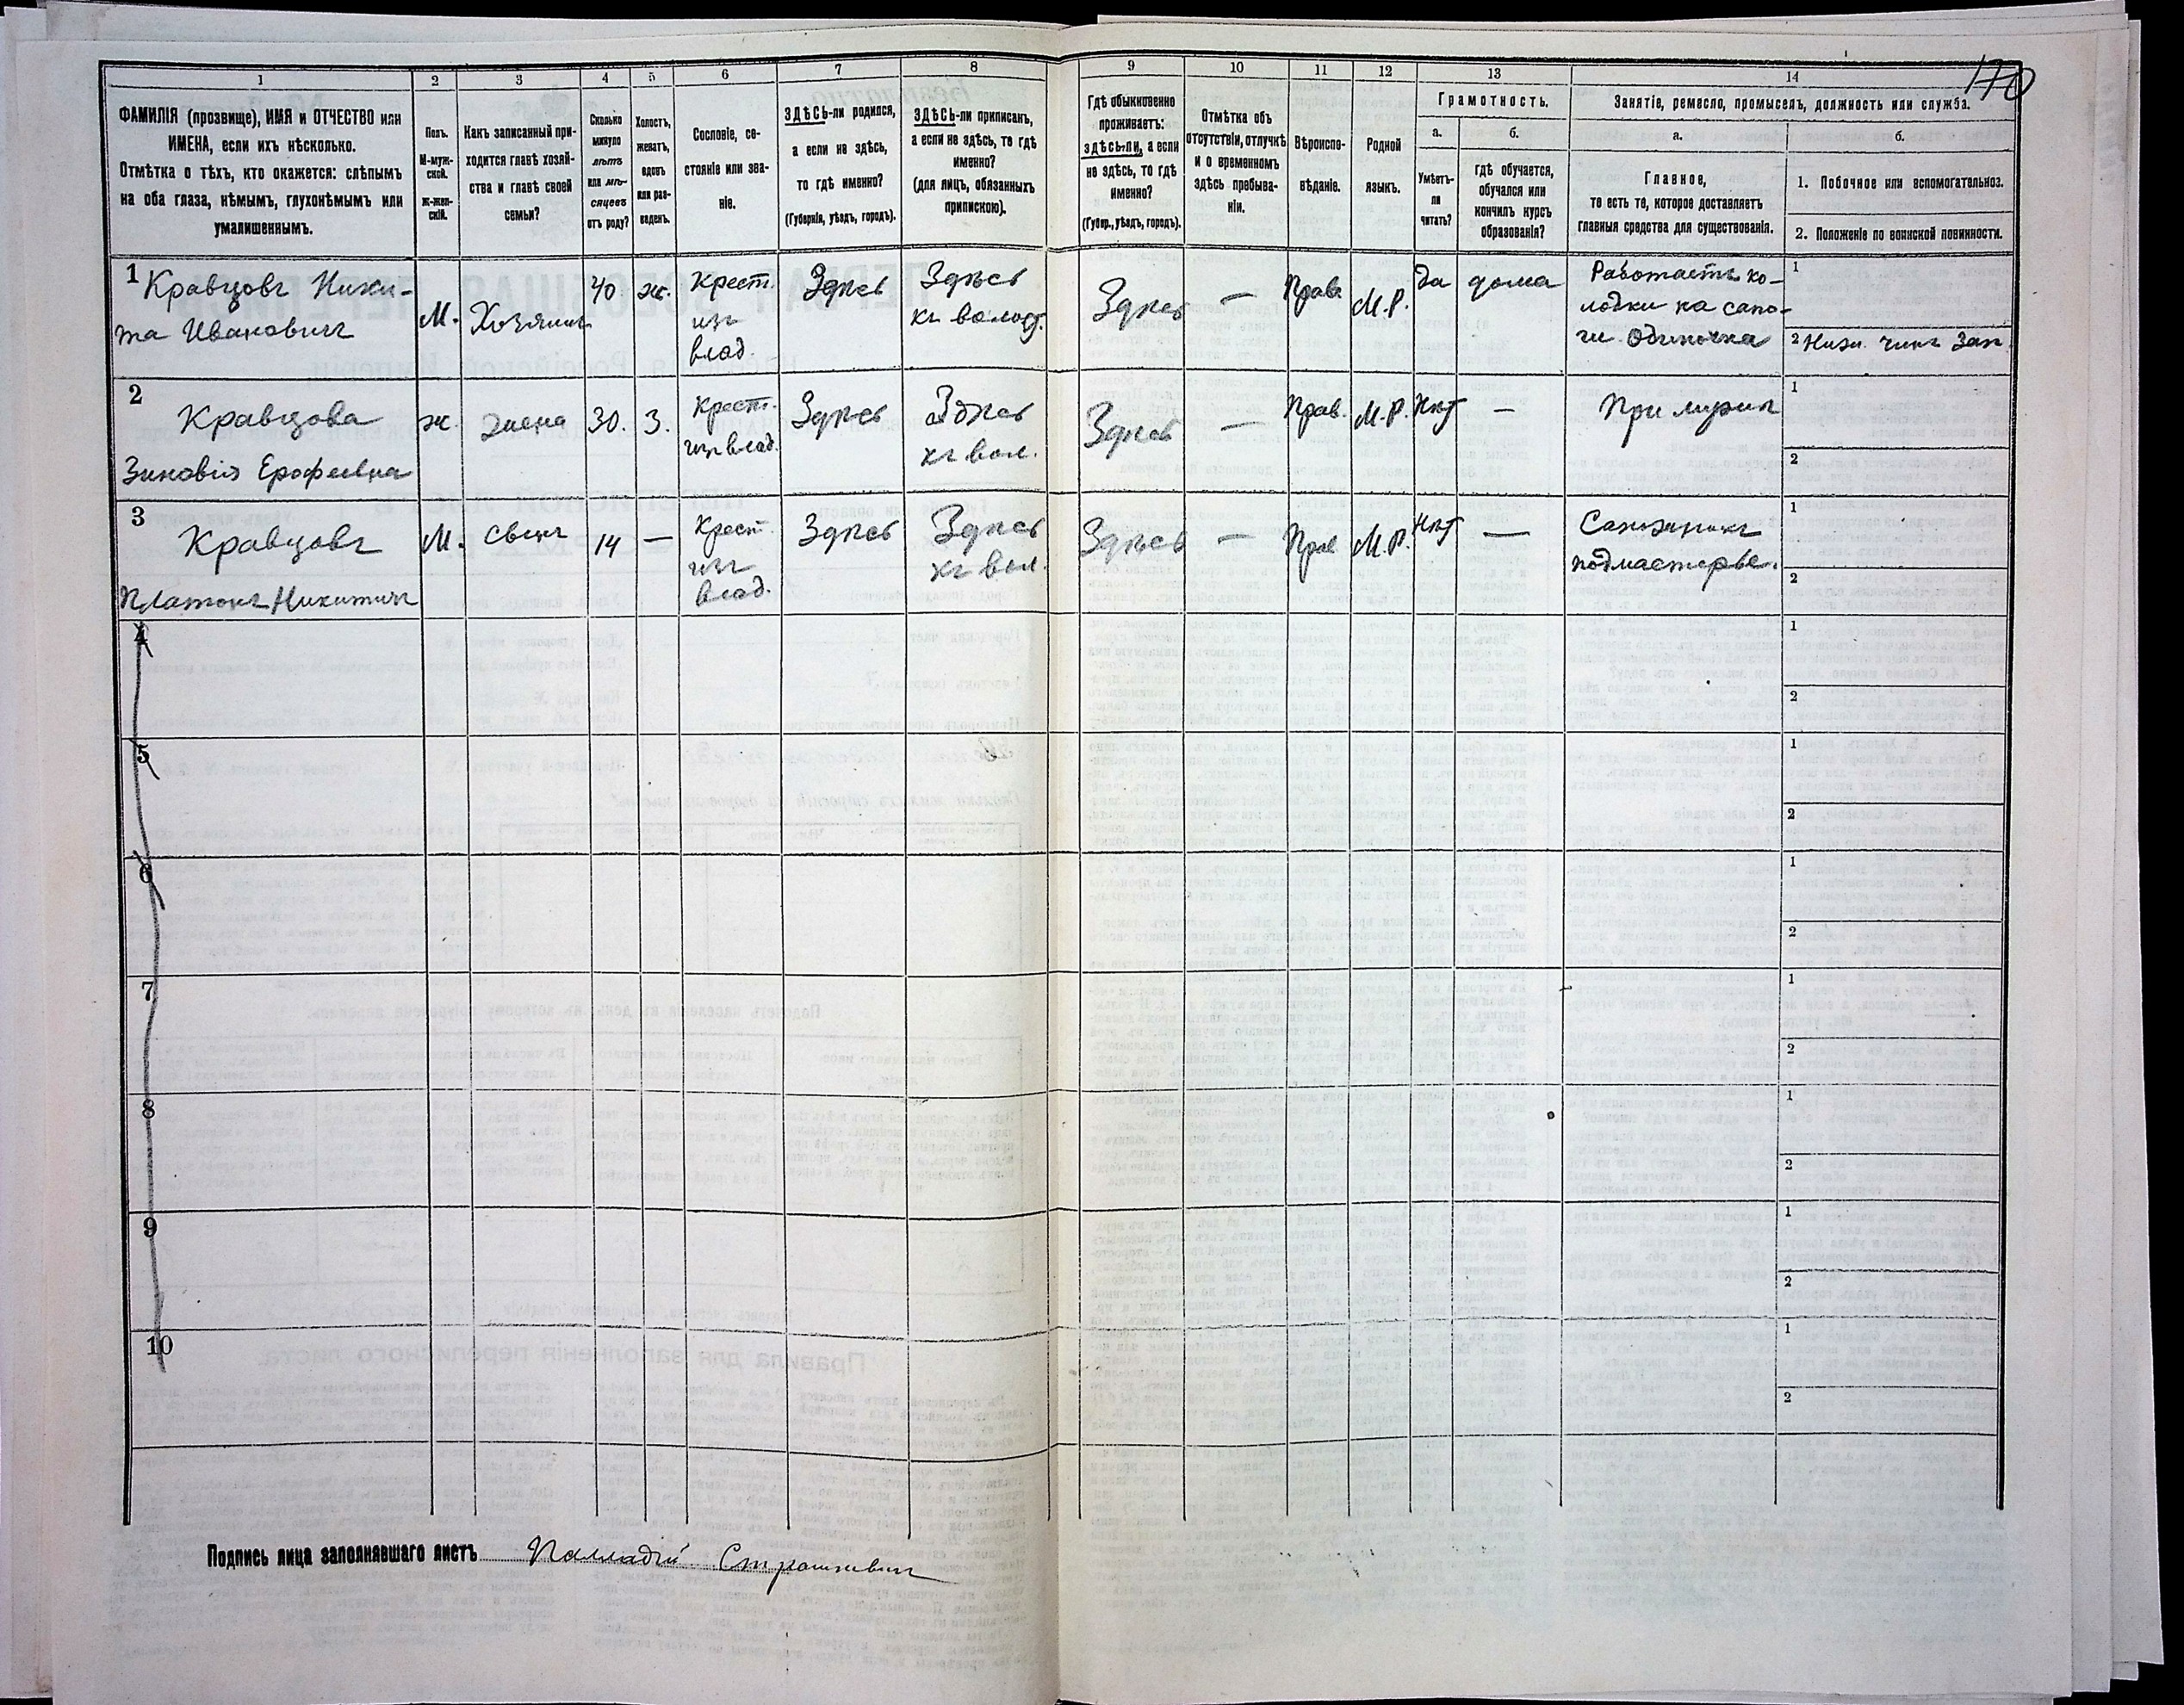 170
1
2
3
4
5
6
7
8
9
10
11
12
13
14
ФАМИЛІЯ (прозвище), ИМЯ и ОТЧЕСТВО или
ИМЕНА, если ихъ нѣсколько.
Отмѣтка о тѣхъ, кто окажется: слѣпымъ
на оба глаза, нѣмымъ, глухонѣмымъ или
умалишеннымъ.
Полъ.
М-муж-
ской.
ж-жен-
скій.
Какъ записанный при-
ходится главѣ хозяй-
ства и главѣ своей
семьи?
Сколько
минуло
лѣтъ
или мѣ-
сяцевъ
отъ роду?
Холостъ,
женатъ,
вдовъ
или раз-
веденъ.
Сословіе, со-
стояніе или зва-
ніе.
ЗДѢСЬ-ли родился,
а если не здѣсь,
то гдѣ именно?
(Губернія, уѣздъ, городъ).
ЗДѢСЬ-ли приписанъ,
а если не здѣсь, то гдѣ
именно?
(для лицъ, обязанныхъ
припискою).
Гдѣ обыкновенно
проживаетъ:
здѣсь-ли, а если
не здѣсь, то гдѣ
именно?
(Губер., уѣздъ, городъ).
Отмѣтка объ
отсутствіи, отлучкѣ
и о временномъ
здѣсь пребыва-
ніи.
Вѣроиспо-
вѣданіе.
Родной
языкъ.
Грамотность.
а.
б.
Умѣетъ-
ли
читать?
гдѣ обучается,
обучался или
кончилъ курсъ
образованія?
Занятіе, ремесло, промыселъ, должность или служба.
а.
б.
Главное,
то есть то, которое доставляетъ
главныя средства для существованія.
1. Побочное или вспомогательное.
2. Положеніе по воинской повинности.
1 Кравцовъ Ники-
та Ивановичъ
М.
Хозяинъ
40
ж.
Крест.
изъ
влад.
Здѣсь
Здѣсь
къ волост.
Здѣсь
—
Прав
М.Р.
Да
дома
Работаетъ ко-
лодки на сапо-
ги. Одиночка
1
2 Нижн. чинъ Зап.
2
Кравцова
Зиновія Ерофеевна
ж.
жена
30.
З.
Крест.
изъ влад.
Здѣсь
Здѣсь
къ вол.
Здѣсь
—
Прав.
М.Р.
Нѣт
—
При мужѣ
1
2
3
Кравцовъ
Платонъ Никитичъ
М.
сынъ
14
—
Крест.
изъ
влад.
Здѣсь
Здѣсь
къ вол.
Здѣсь
—
Прав
М.Р.
Нѣт
—
Сапожникъ
подмастерье.
1
2
4
1
2
5
1
2
6
1
2
7
1
2
8
1
2
9
1
2
10
1
2
Подпись лица заполнявшаго листъ Палладій Страшкевичъ